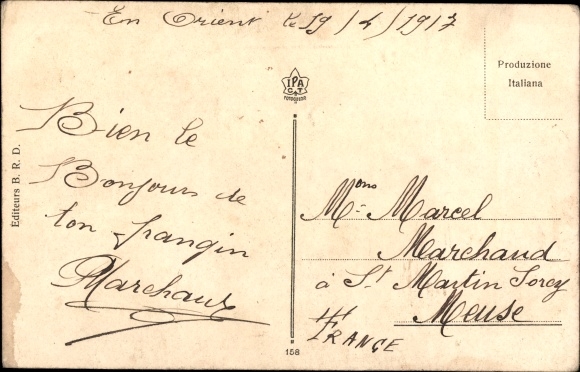 En Orient le 19/4/1917
Produzione
Italiana
IPA
CT
Editeurs B. R. D.
Bien le
Bonjour de
ton frangin
Marchaud
Mons Marcel
Marchaud
à St Martin Sorcy
Meuse
France
158